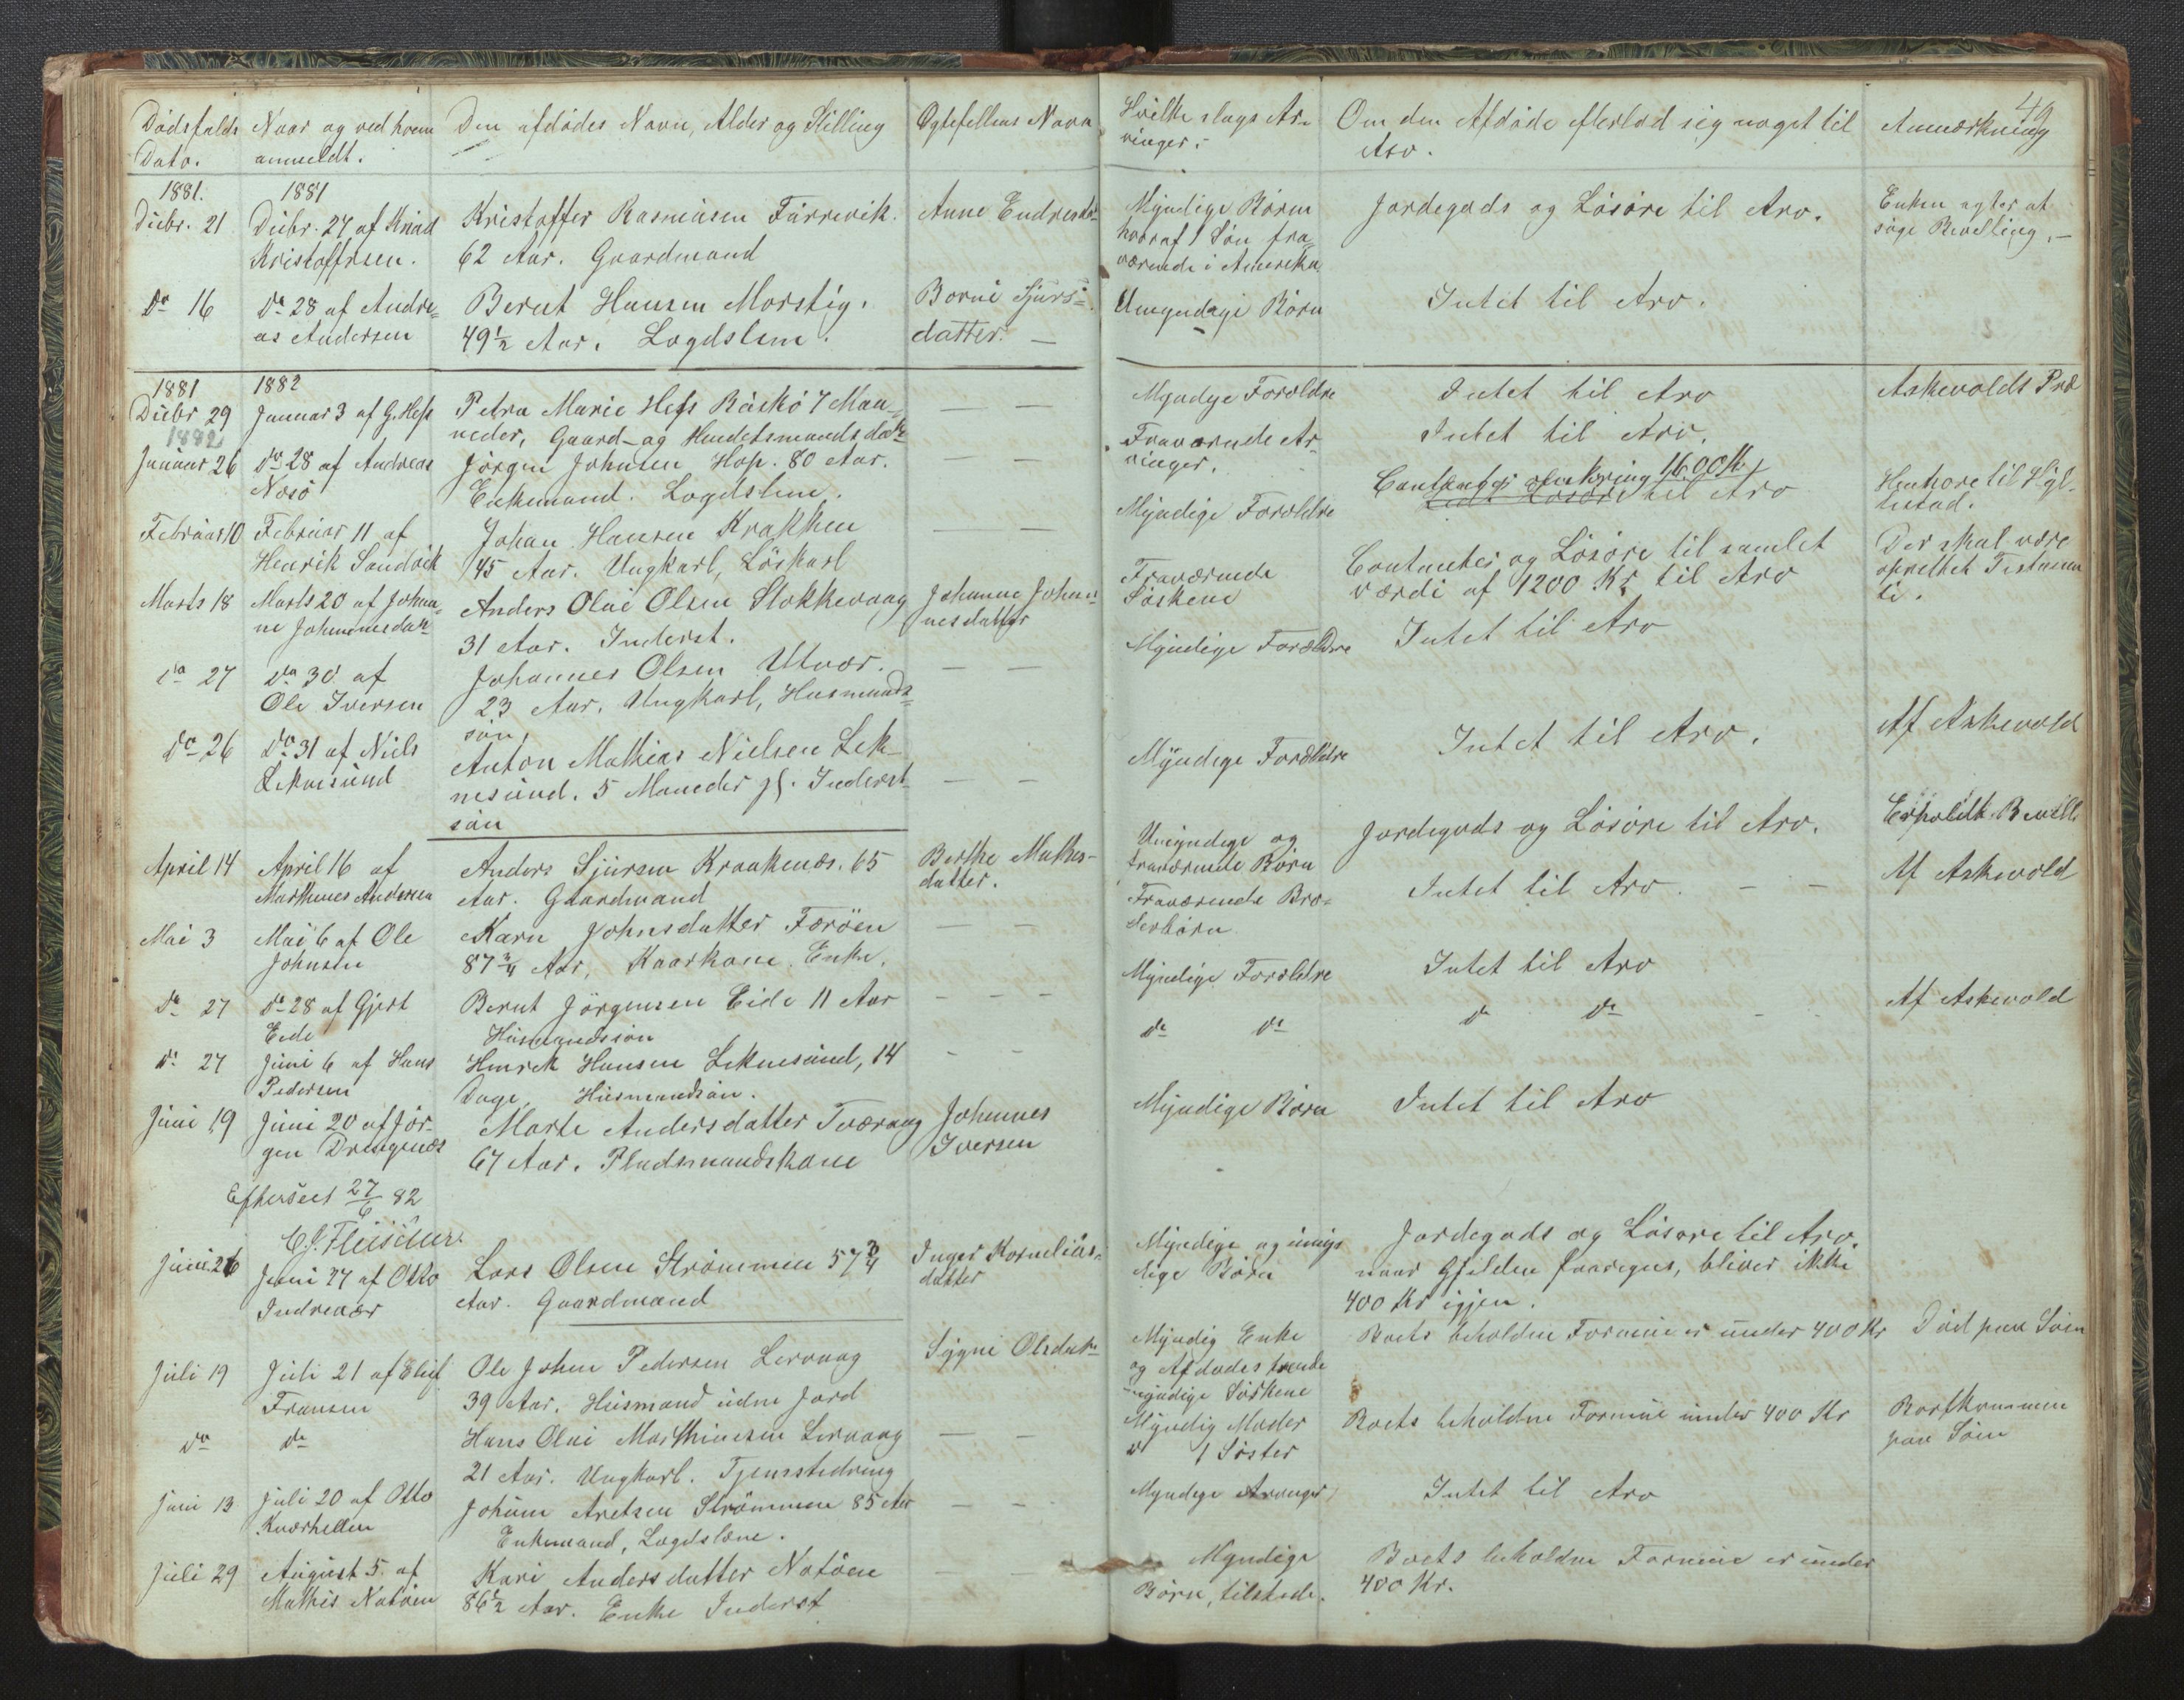 49
Dødsfalds Naar og ved hvem Den afdødes Navn, Alder og Stilling Ægtefellens Navn Hvilke slags Ar- Om den Afdøde efterlod sig noget til Anmærkning
Dato. anmeldt. vinger. Arv.
1881. 1881
Decbr. 21 Decbr. 27 af Knud Kristoffer Rasmusen Færrevik. Anne Endresdr Myndige Børn Jordegods og Løsøre til Arv. Enken agter at
Kristoffersen. 62 Aar. Gaardmand hvoraf 1 Søn fra- søge Bevilling.—
værende i Amerika
Do 16 Do 28 af Andre= Bernt Hansen Morstig. Borni Sjurs= Umyndige Børn Intet til Arv.
as Andersen 49½ Aar. Lægdslem. datter. —
1881 1882
Decbr 29 Januar 3 af G. Hefs Petra Marie Hefs Buskø 7 Maa= — — Myndige Forældre Intet til Arv Askevolds Præ
1882 neder, Gaard- og Handelsmandsdatr Fraværende Ar- Intet til Arv.
Januar 26 Do 28 af Andreas Jørgen Johnsen Hop. 80 Aar. — — vinger.
Nosø Enkemand. Lægdslem. Contanter omkring 1600 Kr Henhøre til Hyl-
Februar 10 Februar 11 af Johan Hansen Krakken — — Myndige Forældre til Arv lestad.
Henrik Sandvik 45 Aar. Ungkarl, Løskarl
Marts 18 Marts 20 af Johan= Anders Olai Olsen Stokkevaag Johanne Johan= Fraværende Contanter og Løsøre til samlet Der skal være
ne Johannesdatr 31 Aar. Inderst. nesdatter Søskene værdi af 1200 Kr. til Arv oprettet Testamen
te.
Do 27 Do 30 af Johannes Olsen Utvær. — — Myndige Forældre Intet til Arv
Ole Iversen 23 Aar. Ungkarl, Husmands=
søn
Do 26 Do 31 af Niels Anton Mathias Nielsen Lek- — — Myndige Forældre Intet til Arv. Af Askevold
Leknesund nesund. 5 Maaneder gl. Inderst
søn
April 14 April 16 af Anders Sjursen Kraakenæs. 65 Berthe Mathis- Umyndige og Jordegods og Løsøre til Arv. Erholdt Bevill.
Marthines Andersen Aar. Gaardmand datter. fraværende Børn
Mai 3 Mai 6 af Ole Karn Johnsdatter Færøen — — Fraværende Bro= Intet til Arv. — — Af Askevold
Johnsen 87¾ Aar, Kaarkone. Enke. derbørn
Do 27 Do 28 af Gjert Bernt Jørgensen Eide 11 Aar — — — Myndige Forældre Intet til Arv
Eide Husmandssøn
Do 27 Juni 6 af Hans Henrik Hansen Leknesund, 14 — — do do do do Af Askevold
Pedersen Dage. Husmandsøn.
Juni 19 Juni 20 af Jør- Marte Andersdatter Tværaag Johannes Myndige Børn Intet til Arv
gen Drengenæs 67 Aar. Pladsmandskone Iversen
Efterseet 27/6 82
C. J. Fleischer.
Juni 26 Juni 27 af Otto Lars Olsen Strømmen 57¾ Inger Kornelius= Myndige og umyn Jordegods og Løsøre til Arv
Indrevær Aar. Gaardmand datter dige Børn naar Gjelden fraregnes, bliver ikke
400 Kr igjen.
Juli 19 Juli 21 af Eluf Ole Johan Pedersen Lervaag Sygni Olsdatr Myndig Enke Boets beholdne Formue er under 400 Kr Død paa Søen
Fransen 39 Aar. Husmand uden Jord og Afdødes
myndige Søskene
do do Hans Olai Marthinesen Lervaag — — Myndig Moder Boets beholdne Formue under 400 Kr Bortkommen
21 Aar. Ungkarl. Tjenestedreng do 1 Søster paa Søen
Juni 13 Juli 20 af Otto Johan Aretsen Strømmen 85 Aar — — Myndige Arvinger Intet til Arv
Kværhellen Enkemand, Lægdslem.
Juli 29 August 5. af Kari Andersdatter Notøen — Myndige Boets beholdne Formue er under
Mathis Notøen 86½ Aar. Enke Inderst Børn, tilstede. 400 Kr.